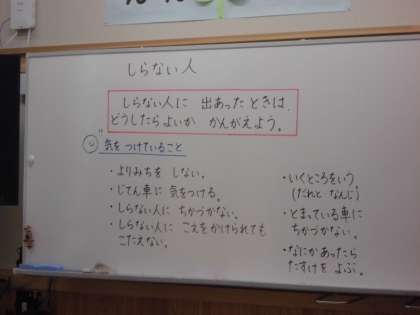 しらない人
しらない人に 出あったときは、
どうしたらよいか かんがえよう。
気をつけていること
・よりみちを しない。
・じてん車に 気をつける。
・しらない人に ちかづかない。
・しらない人に こえをかけられても
こたえない。
・いくところをいう
(だれと・なんじ)
・とまっている車に
ちかづかない。
・なにかあったら
たすけを よぶ。